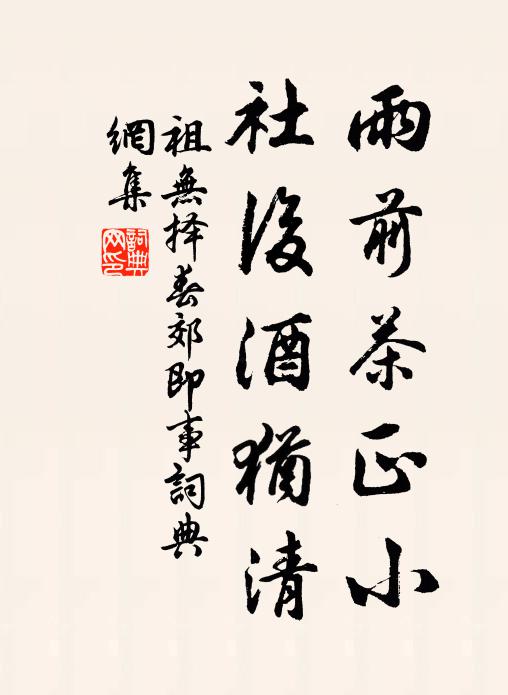 雨前茶正小
社後酒猶清
祖無择春郊即事詞典
網集
詞典
网印